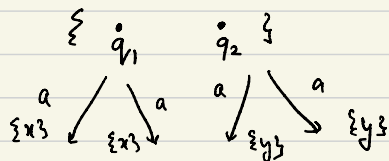 { q̇₁ q̇₂ }
a a a a
{x} {x} {y} {y}